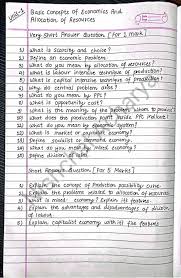 Unit-1
Basic Concepts of Economics And
Allocation of Resources
Very Short Answer Question [For 1 mark]
1) What is scarcity and choice?
2) Define an economic problem.
3) What do you mean by allocation of resources?
4) What is labour intensive technique of production?
5) What is capital intensive technique of production?
6) Why do central problem arise?
7) What do you mean by PPC?
8) What is opportunity cost?
9) What is the meaning of the problem
10) What does the production point inside PPC indicate?
11) What do you mean by economic system?
12) What is market or capitalist economy?
13) Define socialist or economy.
14) What do you mean by mixed economy?
15) Define division of labour.
Short Answer Question [For 5 Marks]
1) Explain the concept of Production possibility curve.
2) Explain the problems related to allocation of resources.
3) What is mixed economy? Explain its features.
4) Explain the advantages and disadvantages of division
of labour.
5) Explain capitalist economy with its features.